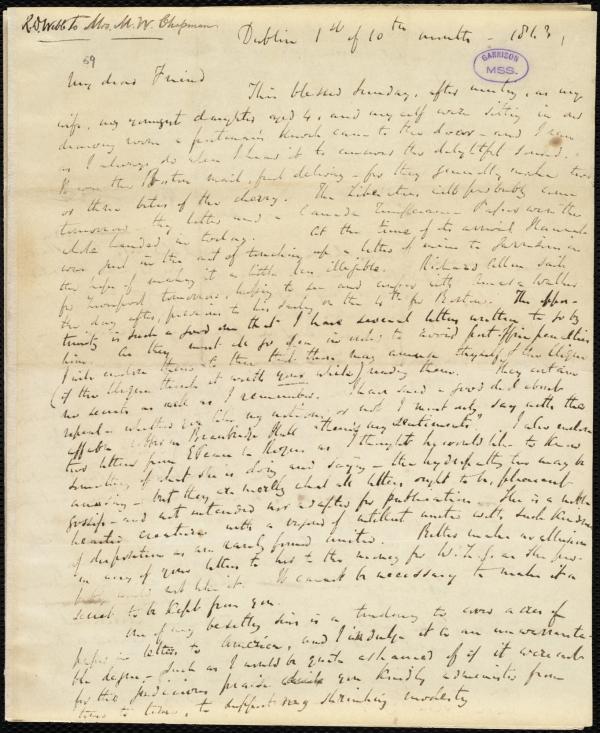 R.D. Webb to Mrs. M. W. Chapman.
Dublin 1st of 10th month - 1843,
59
GARRISON
MSS.
My dear Friend
This blessed Sunday, after meeting, as my
wife, my youngest daughter aged 4, and myself were sitting in our
drawing room a postman's knock came to the door - and I ran
as I always do when I hear it to answer the delightful sound.
It was the Boston mail, just delivery - for they generally make two
or three bites of the cherry. The Liberators will probably come
tomorrow thy letter and a Canada Temperance Papers were the
handed in today. At the time of its arrival Hannah
was just in the act of touching up a letter of mine to Garrison in
the hope of making it a little less illegible. Richard Allen sails
for Liverpool tomorrow, hoping to see and confer with Amasa Walker
the day after, previous to his sailing on the 4th for Boston. The oppor-
tunity is such a good one that I have several letters written to go by
him. As they must all go open in order to avoid post office penalties
I will enclose them to thee that thou may amuse thyself (if the
(if thou thinks it worth your while) reading them. They contain
no secrets as well as I remember. I have said a good deal about
repeal - whether you like my notions or not I must only say with the
affable "them's my sentiments". I also enclose
two letters from to Rogers as I thought he would like to know
something of what she is doing and saying - the hydropathy too may be
amusing - but they are merely what all letters ought to be, pleasant
gossip - and not intended nor adapted for publication. She is a noble
hearted creature with a vigour of intellect united with such kindness
of disposition as are rarely found united. Better make no allusion
in any of your letters to her to the money for W.L.G. as she pos-
sibly would not like it. It cannot be necessary to make it a
secret to be kept from you.
One of my besetting sins is a tendency to cover acres of
paper in letters to America, and I indulge it to an unwarranta-
ble degree - such as I would be quite ashamed of if it were not
for the judicious praise you kindly administer from
time to time, to support my shrinking modesty